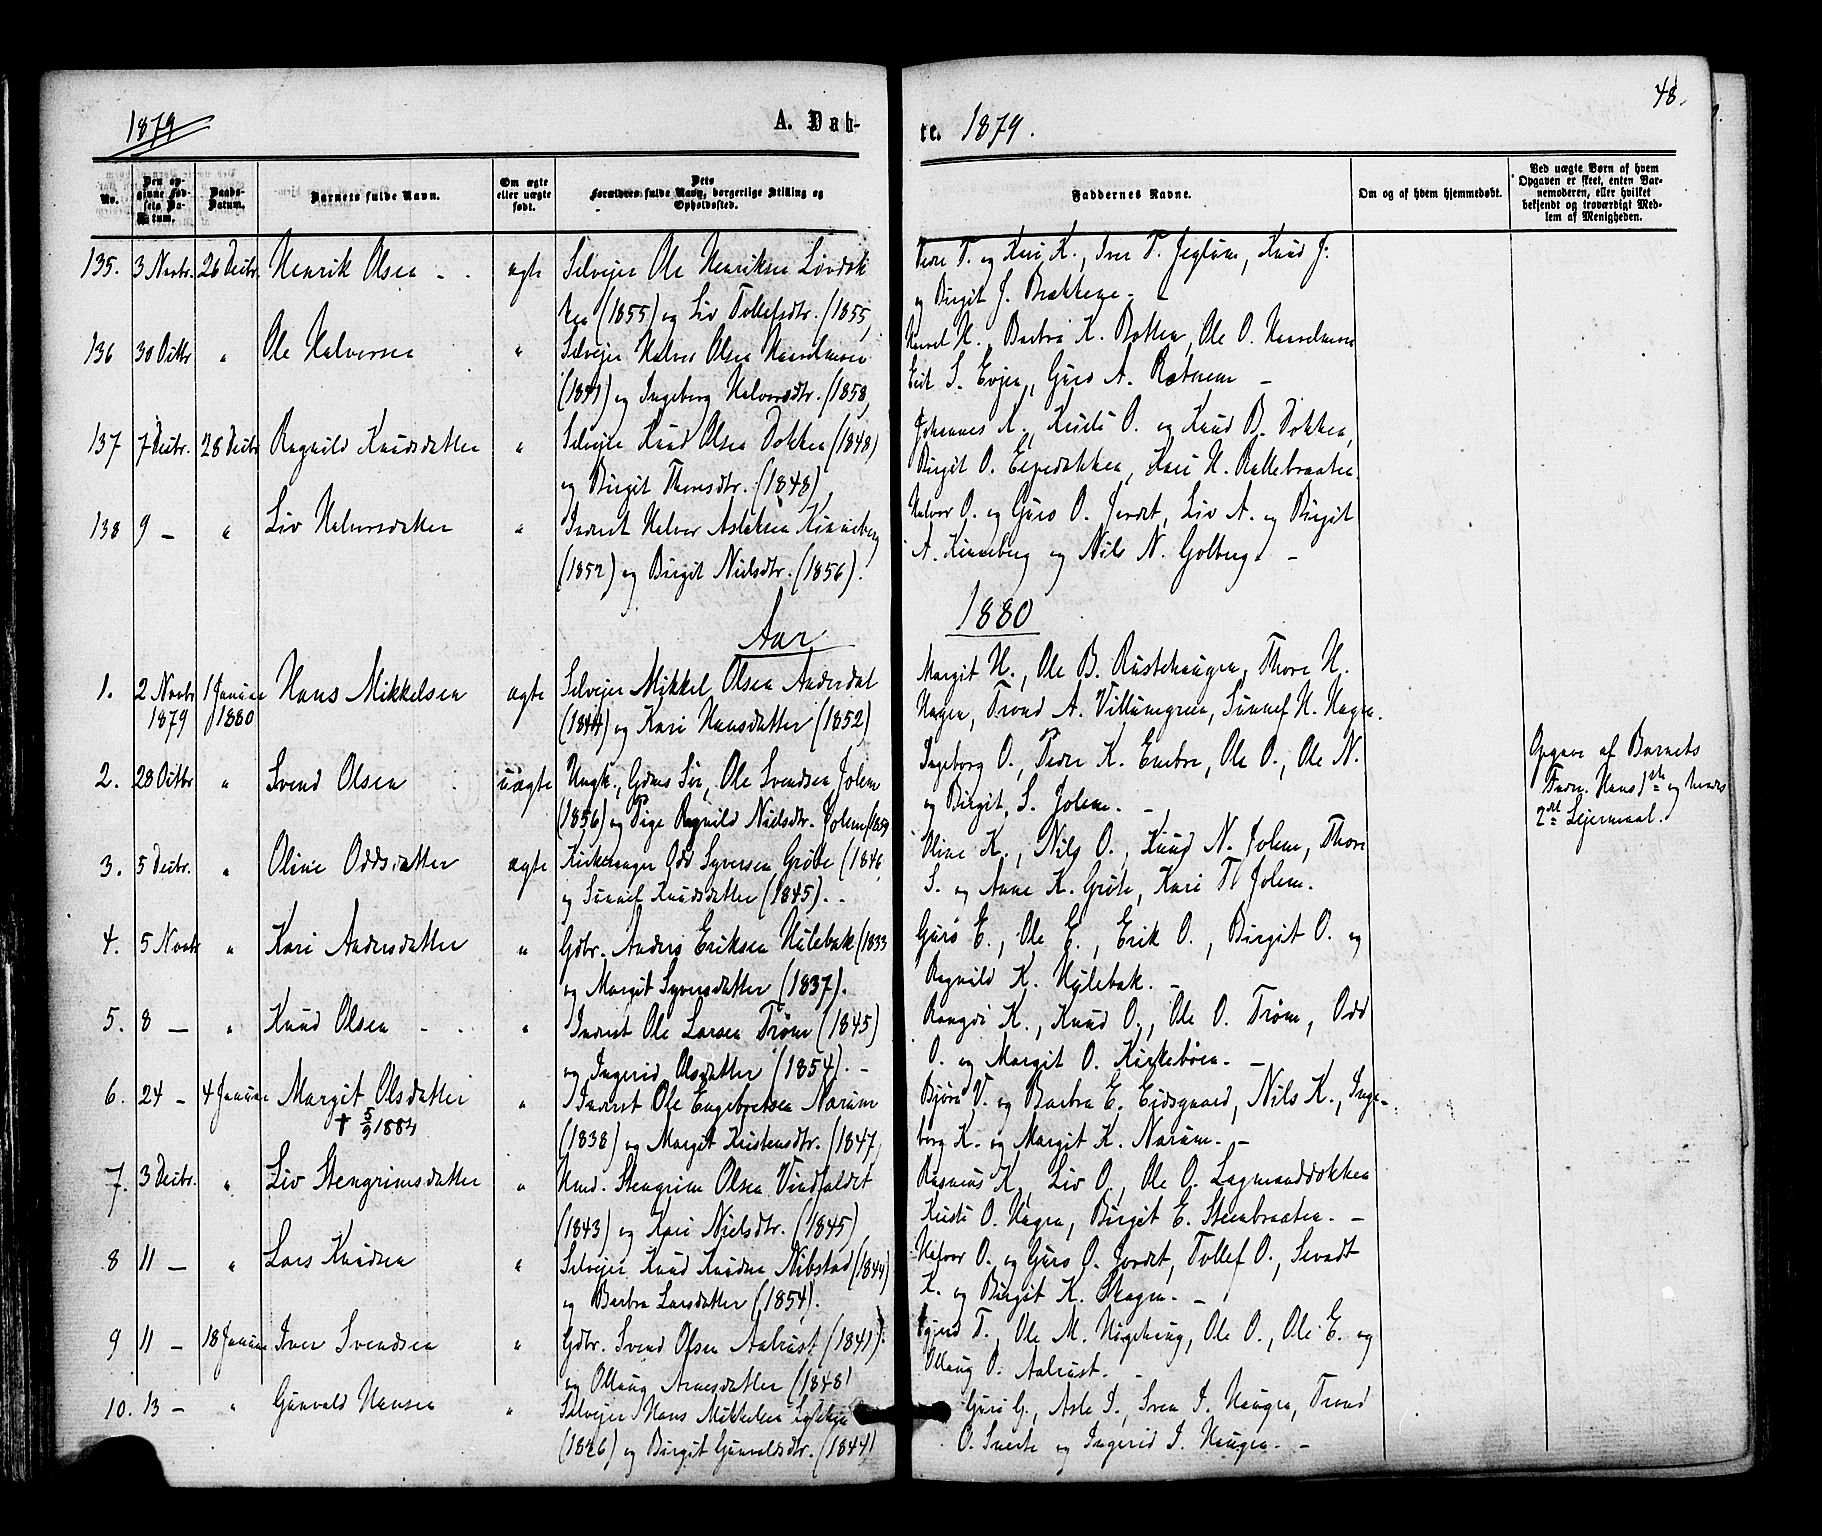 1879
A. Døb-
te. 1879.
48.
No.
Den opgivne Fødsels Datum.
Daabs-Datum.
Barnets fulde Navn.
Om ægte eller uægte født.
Dets Forældres fulde Navn, borgerlige Stilling og Opholdssted.
Faddernes Navne.
Om og af hvem hjemmedøbt.
Ved uægte Børn af hvem Opgaven er skeet, enten Barnemoderen, eller hvilket bekjendt og troværdigt Medlem af Menigheden.
135. 3 Novbr. 26 Decbr. Henrik Olsen - . ægte Selvejer Ole Henriksen Løvdok
ken (1855) og Liv Tollefsdtr. (1855,
Peder T. og Kari K., Iver T. Jeglum, Knud J.
og Birgit J. Brækkene. -
136 30 Octbr " Ole Halvorsen " Selvejer Halvor Olsen Haavelmoen
(1849) og Ingeborg Halvorsdtr. (1858,
Haavel H., Barbra K. Bakken, Ole O. Haavelmoen
Eivt. S. Evjen, Guro A. Rotneim -
137 7 Decbr. 28 Decbr Ragnild Knudsdatter " Selvejer Knud Olsen Dokken (1848)
og Birgit Thoresdtr. (1848)
Johannes K., Kristi O. og Knud B. Dokken,
Birgit O. Engedokken, Kari H. Ballebraaten
138 9 - " Liv Halvorsdatter " Inderst Halvor Aslaksen Kinneberg
(1852) og Birgit Nielsdtr. (1856).
Halvor O. og Guro O. Jordet, Liv A. og Birgit
A. Kinneberg og Nils N. Golberg. -
Aar
1880
1. 2 Novbr 1879 1 Januar 1880 Hans Mikkelsen ægte Selvejer Mikkel Olsen Andersdal
(1844) og Kari Hansdatter (1852)
Margit H., Ole B. Rustehaugen, Thore H.
Hagen, Trond A. Villumgreen, Sunnef H. Hagen.
2. 28 Octbr " Svend Olsen uægte Ungk., Gdms Søn, Ole Svendsen Jolem
(1856) og Pige Ragnild Nielsdtr. Jolem (1859
Ingeborg O., Peder K. Enebro, Ole O., Ole N.
og Birgit S. Jolem. -
Opgave af Barnets
Fader. Hans 1ste og hendes
2det Lejermaal.
3. 5 Decbr. " Oline Oddsdatter ægte Kirkesanger Odd Syversen Grøte (1846
og Sunnef Knudsdatter (1845). -
Oline K., Nils O., Knud N. Jolem, Thore
S. og Anne K. Grøte, Kari T. Jolem.
4. 5 Novbr " Kari Andersdatter " Gdbr. Anders Eriksen Hulebak (1833
og Margit Syversdatter (1837).
Guro E., Ole E., Erik O., Birgit O. og
Ragnild K. Hulebak. -
5. 8 - " Knud Olsen - . " Inderst Ole Larsen Trøim (1845)
og Ingerid Olsdatter (1854). -
Rangdi K., Knud O., Ole O. Trøim, Odd
O. og Margit O. Kirkebøen. -
6. 24 - 4 Januar Margit Olsdatter " Inderst Ole Engebretsen Narum
† 5/9 1884
(1838) og Margit Kristensdtr. (1847,
Bjørn V. og Barbra E. Eidsgaard, Nils K., Inge-
borg K. og Margit K. Narum. -
7. 3 Decbr. " Liv Stengrimsdatter " Hmd. Stengrim Olsen Vindfaldet
(1843) og Kari Nielsdtr. (1845)
Rasmus K., Liv O., Ole O. Lagmanddokken
Kristi O. Hagen, Birgit E. Steenbraaten. -
8 11 - " Lars Knudsen " Selvejer Knud Knudsen Nibstad (1844)
og Barbra Larsdatter (1854).
Halvor O. og Guro O. Jordet, Tollef O., Sevadt
K. og Birgit K. Skogen. -
9 11 - 18 Januar Iver Svendsen " Gdbr. Svend Olsen Aalrust (1841).
og Ollaug Arnesdatter (1848)
T., Ole M. Ole O., Ole E. og
Ollaug O. Aalrust. -
10. 13 - " Gunvald Hansen " Selvejer Hans Mikkelsen Løkken
(1826) og Birgit Gunvaldsdtr. (1844)
Guro G., Asle I., Sven I. Haugen, Trond
O. Snerte og Ingerid I. Haugen. -